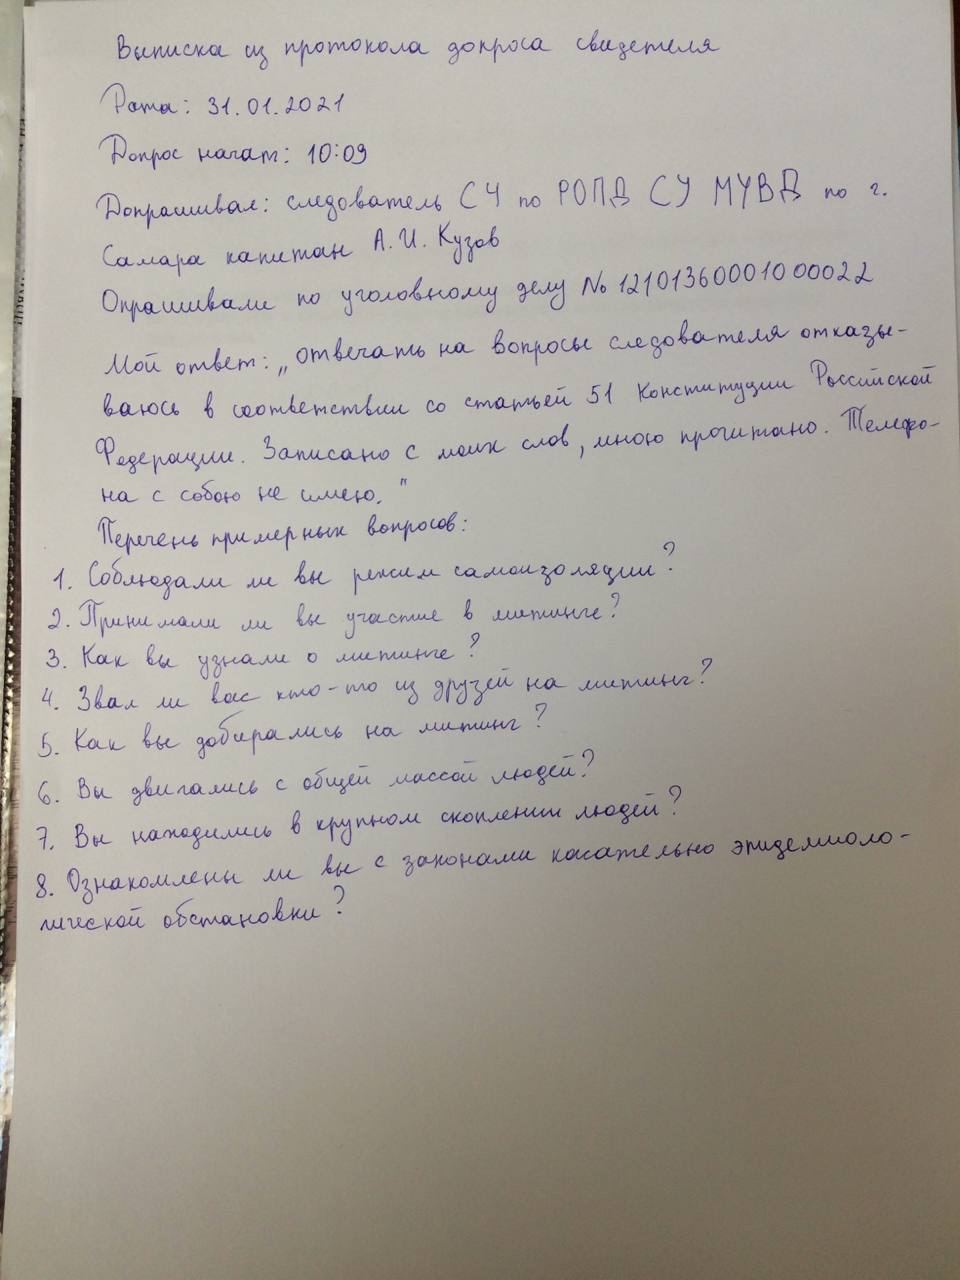 Выписка из протокола допроса свидетеля
Дата: 31.01.2021
Допрос начат: 10:09
Допрашивал: следователь СЧ по РОПД СУ МУВД по г.
Самара капитан А.И. Кузов
Опрашивали по уголовному делу № 12101360001000022
Мой ответ: „отвечать на вопросы следователя отказы-
ваюсь в соответствии со статьей 51 Конституции Российской
Федерации. Записано с моих слов, мною прочитано. Телефо-
на с собою не имею."
Перечень примерных вопросов:
1. Соблюдали ли вы режим самоизоляции?
2. Принимали ли вы участие в митинге?
3. Как вы узнали о митинге?
4. Звал ли вас кто-то из друзей на митинг?
5. Как вы добирались на митинг?
6. Вы двигались с общей массой людей?
7. Вы находились в крупном скоплении людей?
8. Ознакомлены ли вы с законами касательно эпидемиоло-
гической обстановки?